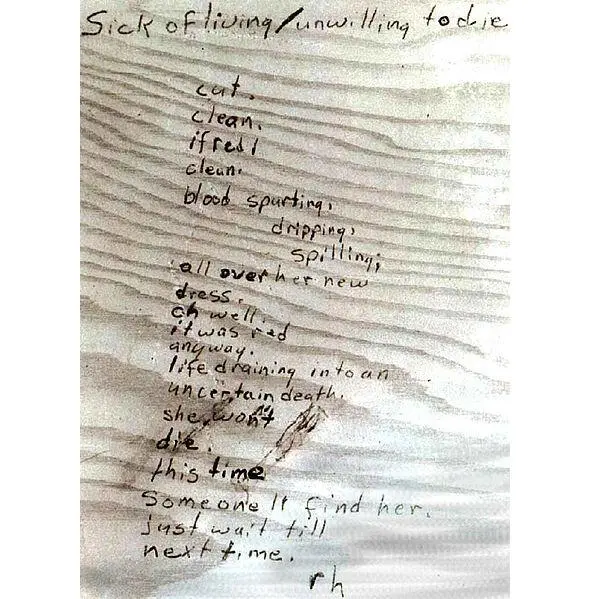 Sick of living/unwilling to die
cut.
clean.
if red,
clean.
blood spurting,
dripping,
spilling;
all over her new
dress.
oh well.
it was red
anyway.
life draining into an
uncertain death.
she won't
die.
this time
Someone'll find her.
just wait till
next time.
rh